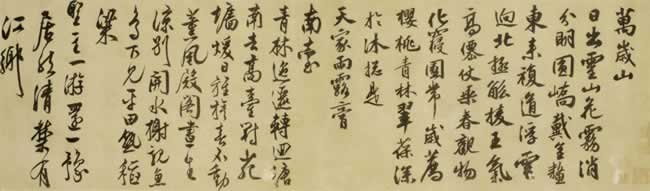 萬歲山
日出靈山花霧消
分明圓嶠戴金鰲
東來複道浮雲
迥北極觚稜王氣
高僊仗乘春觀物
化寢園常歲薦
櫻桃青林翠葆深
於沐總是
天家雨露膏
南臺
青林迤邐轉迴塘
南去高臺對苑
墻暖日旌旗春不動
薰風殿閣晝生
涼別開水榭親魚
鳥下見平田熟稻
粱
聖主一游還一豫
居然清禁有
江鄉